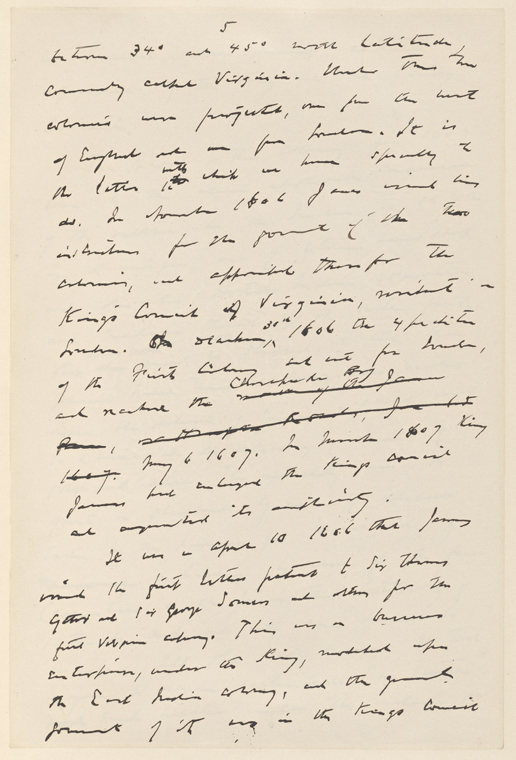 5
between 34° and 45° north latitude,
commonly called Virginia. Under this two
colonies were projected, one from the west
of England and one from London. It is
the latter with which we have specially to
do. In November 1606 James issued his
instructions for the government of the two
colonies, and appointed therefor the
King's Council of Virginia, resident in
London. On December 30th, 1606 the expedition
of the First Colony set out from London,
and reached the Chesapeake Bay
May 6 1607. In March 1607 King
James had enlarged the Kings Council
and augmented its authority.
It was on April 10 1606 that James
issued the first letters patent to Sir Thomas
Gates and Sir George Somers and others for the
first Virginia colony. This was a business
enterprise, under the King, modeled upon
the East India colony, and the general
government of it was in the Kings Council